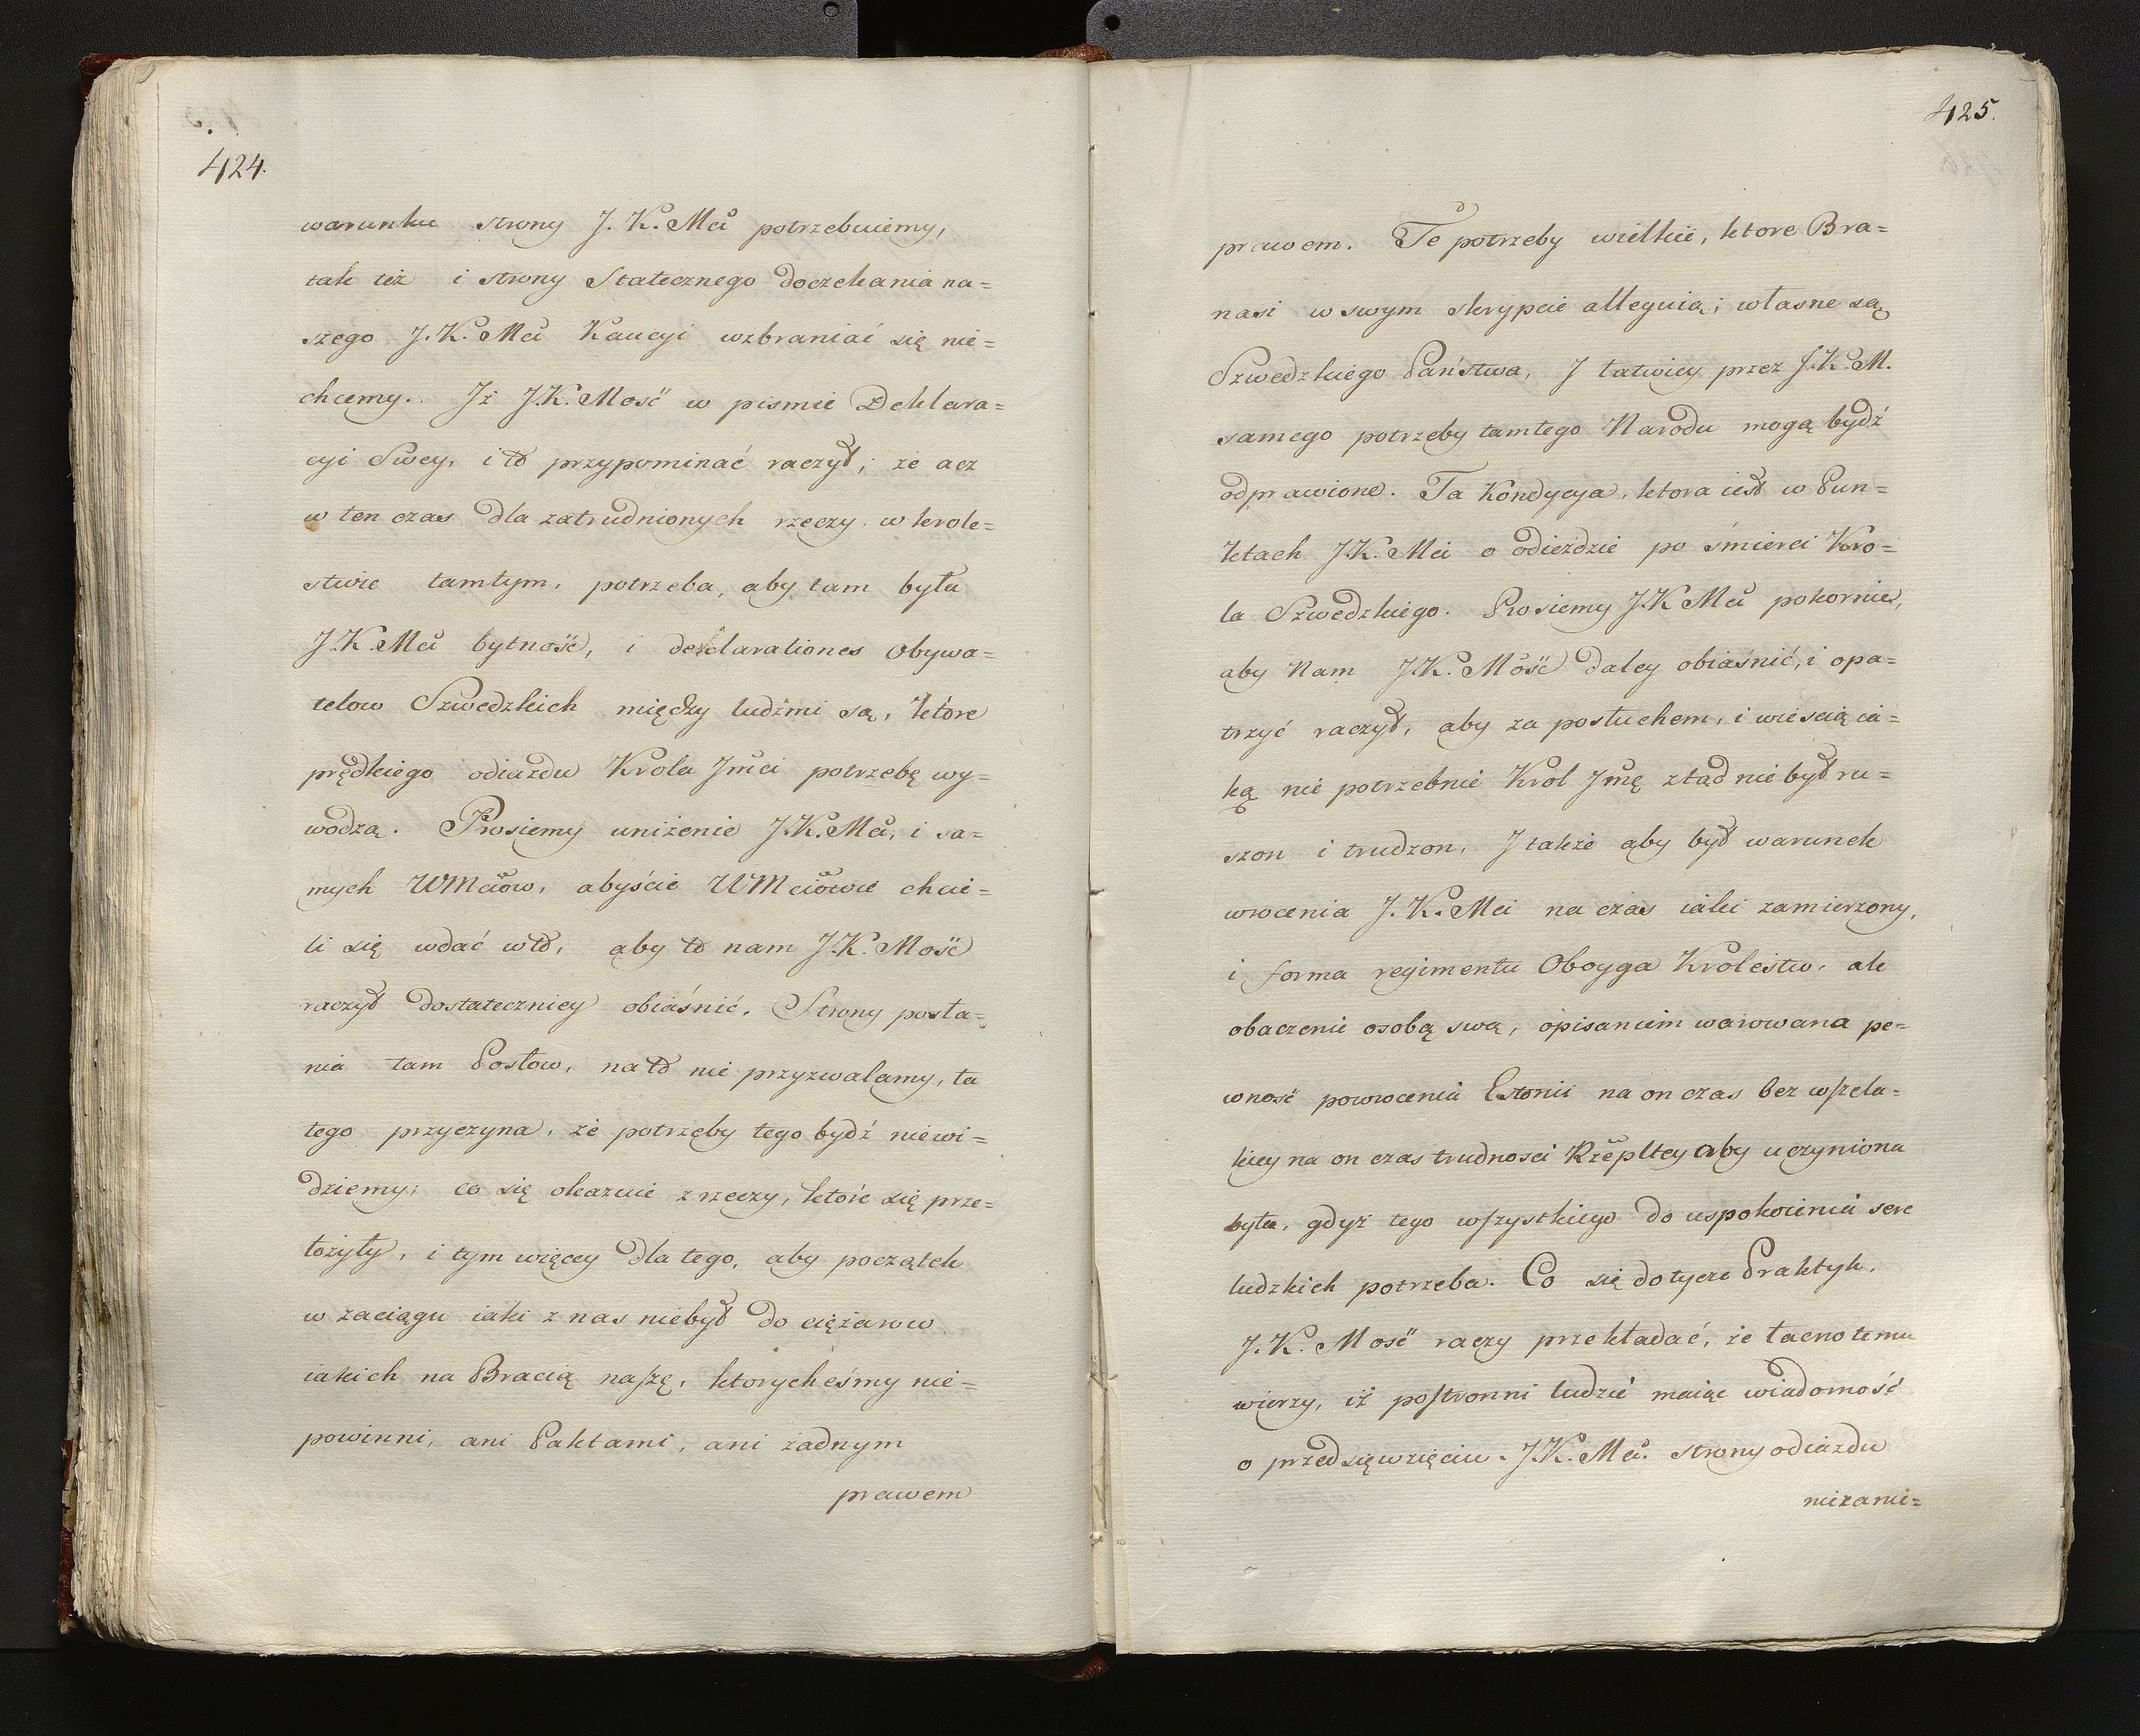 424.
warunku strony J. K. Mci potrzebuiemy,
tak też i strony Statecznego doczekania na=
szego J. K. Mci Kaucyi wzbraniać się nie=
chcemy. Jż J.K. Mość w pismie Deklara=
cyi Swey, i to przypominać raczył; że acz
w ten czas dla zatrudnionych rzeczy w krole=
stwie tamtym, potrzeba, aby tam była
J.K. Mci bytność, i declarationes Obywa=
telow Szwedzkich między ludźmi są, które
prędkiego odiazdu Krola Jmci potrzebę wy=
wodzą. Prosiemy uniżenie J.K. Mci, i sa=
mych WMciow, abyście WMciowie chcie=
li się wdać w to, aby to nam J.K. Mość
raczył dostateczniey obiaśnić. Strony posła=
nia tam Posłow, na to nie przyzwalamy, ta
tego przyczyna, że potrzeby tego bydź niewi=
dziemy; co się okazuie z rzeczy, ktoŕe się prze=
łożyły, i tym więcey dla tego, aby początek
w zaciągu iaki z nas niebył do ciężarow
iakich na Bracią naszę, ktorycheśmy nie=
powinni, ani Paktami, ani żadnym
prawem
425.
prawem. Te potrzeby wielkie, ktore Bra=
nasi w swym skrypcie alleguią; własne są
Szwedzkiego Państwa, J łatwiey przez J.K.M.
samego potrzeby tamtego Narodu mogą bydź
odprawione. Ta Kondycya, ktora iest w Pun=
ktach J.K. Mci o odieździe po śmierci Kro=
la Szwedzkiego. Prosiemy J.K Mci pokornie,
aby Nam J.K. Mość daley obiaśnić, i opa=
trzyć raczył, aby za posłuchem, i wieścią ia=
ką nie potrzebnie Krol Jmę ztąd nie był ru=
szon i trudzon, J także aby był warunek
wrocenia J. K. Mci na czas iaki zamierzony,
i forma regimentu Oboyga Krolestw, ale
obaczenie osobą swą, opisaniem warowana pe=
wność powrocenia Estonii na on czas bez wszela=
kiey na on czas trudności Rzepltey aby uczyniona
była, gdyż tego wszystkiego do uspokoienia serc
ludzkich potrzeba. Co się dotycze Praktyk,
J. K. Mość raczy przekładać, że łacno temu
wierzy, iż postronni ludzie maiąc wiadomość
o przedsięwzięciu J.K. Mci. strony odiazdu
niezanie=